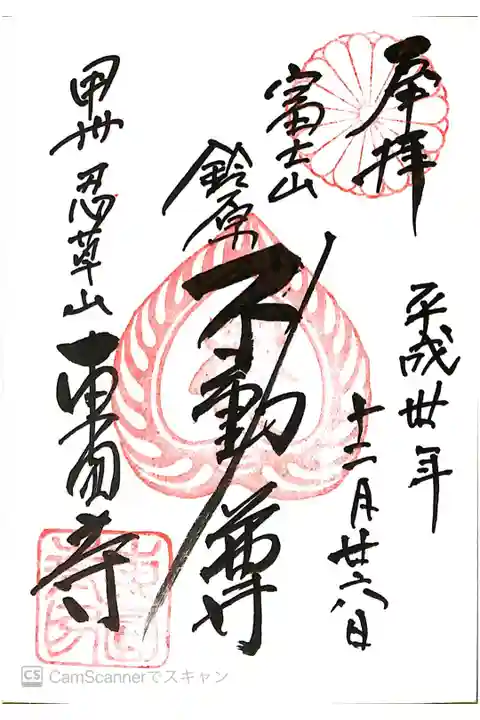 奉拝
平成卅年
十二月廿六日
富士山
鈴原
不動尊
甲州 忍草山 東圓寺
CS CamScannerでスキャン